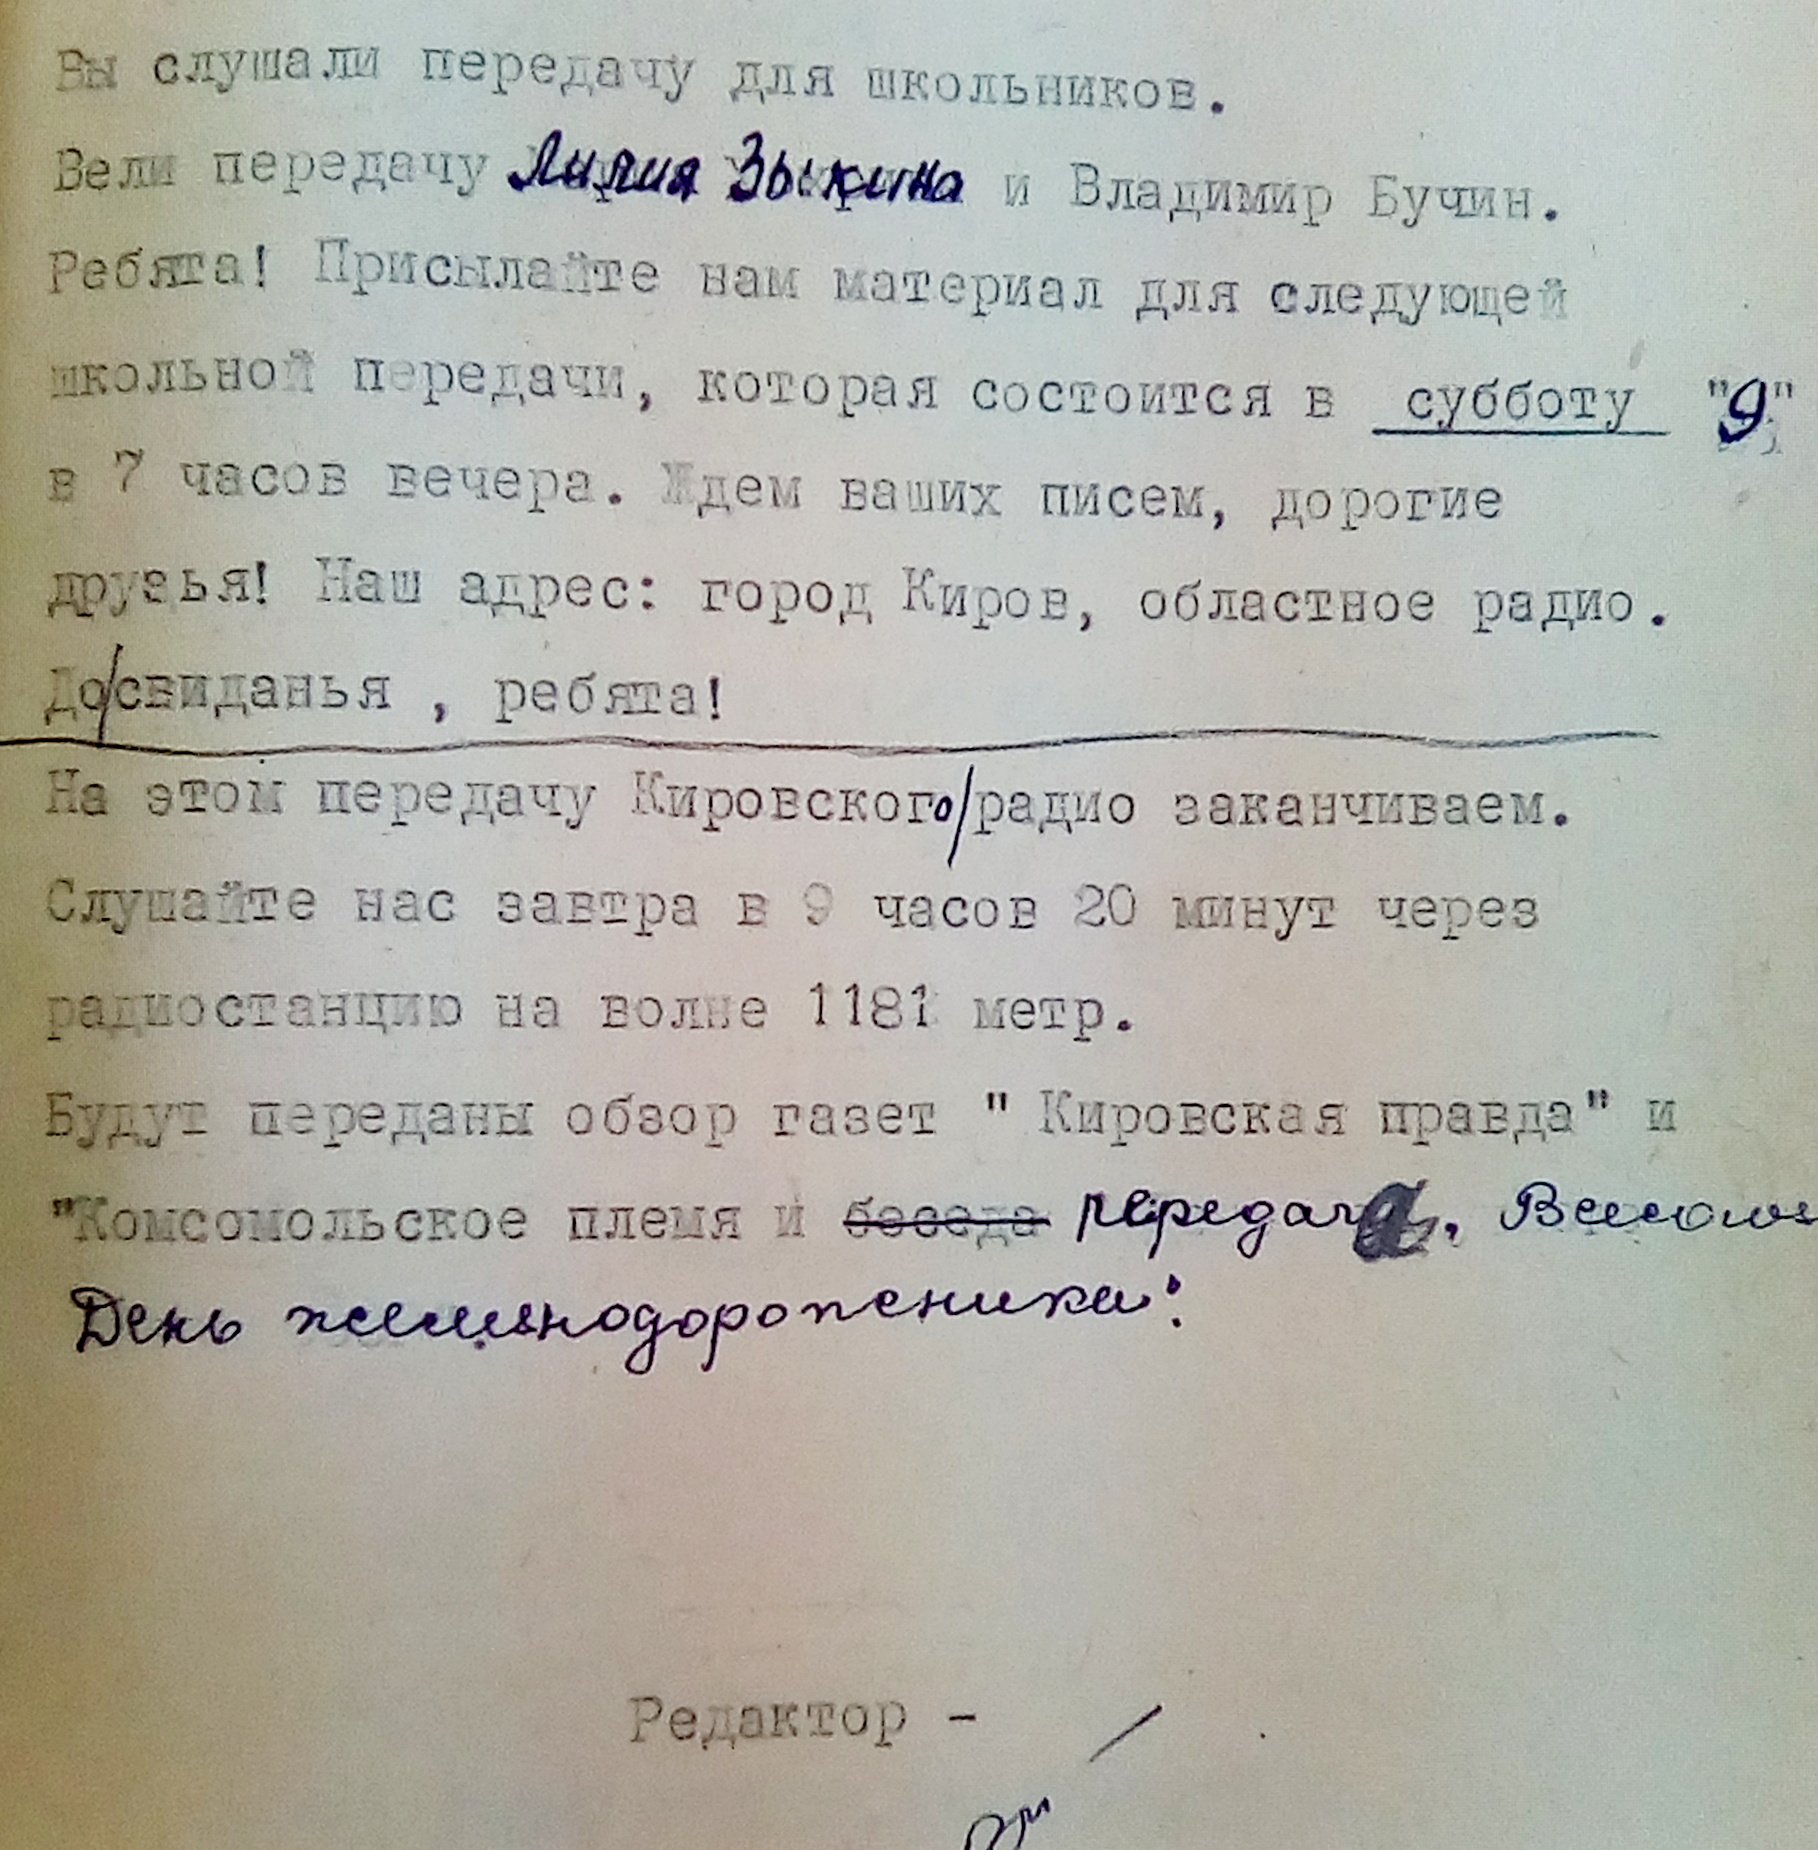 Вы слушали передачу для школьников.
Вели передачу Лилия Зыкина и Владимир Бучин.
Ребята! Присылайте нам материал для следующей
школьной передачи, которая состоится в субботу "9"
в 7 часов вечера. Ждем ваших писем, дорогие
друзья! Наш адрес: город Киров, областное радио.
До/свиданья , ребята!
На этом передачу Кировского/радио заканчиваем.
Слушайте нас завтра в 9 часов 20 минут через
радиостанцию на волне 1181 метр.
Будут переданы обзор газет " Кировская правда" и
"Комсомольское племя и беседа передача,
День железнодорожника:
Редактор -